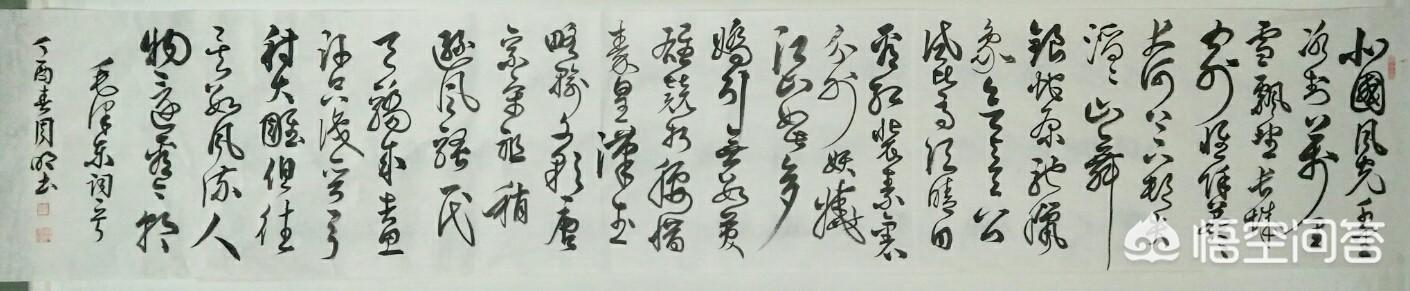 北國風光千里
冰封万里
雪飄望長城
内外惟餘莽〻
大河上下頓失
滔〻山舞
銀蛇原馳臘
象欲与天公
試比高須晴日
看紅裝素裹
分外妖嬈
江山如此多
嬌引無數英
雄競折腰惜
秦皇漢武
略輸文彩唐
宗宋祖稍
遜風騷一代
天驕成吉思
汗只識彎弓
射大雕俱往
矣數風流人
物還看今朝
毛澤東詞雪
丁酉春周明书
悟空问答